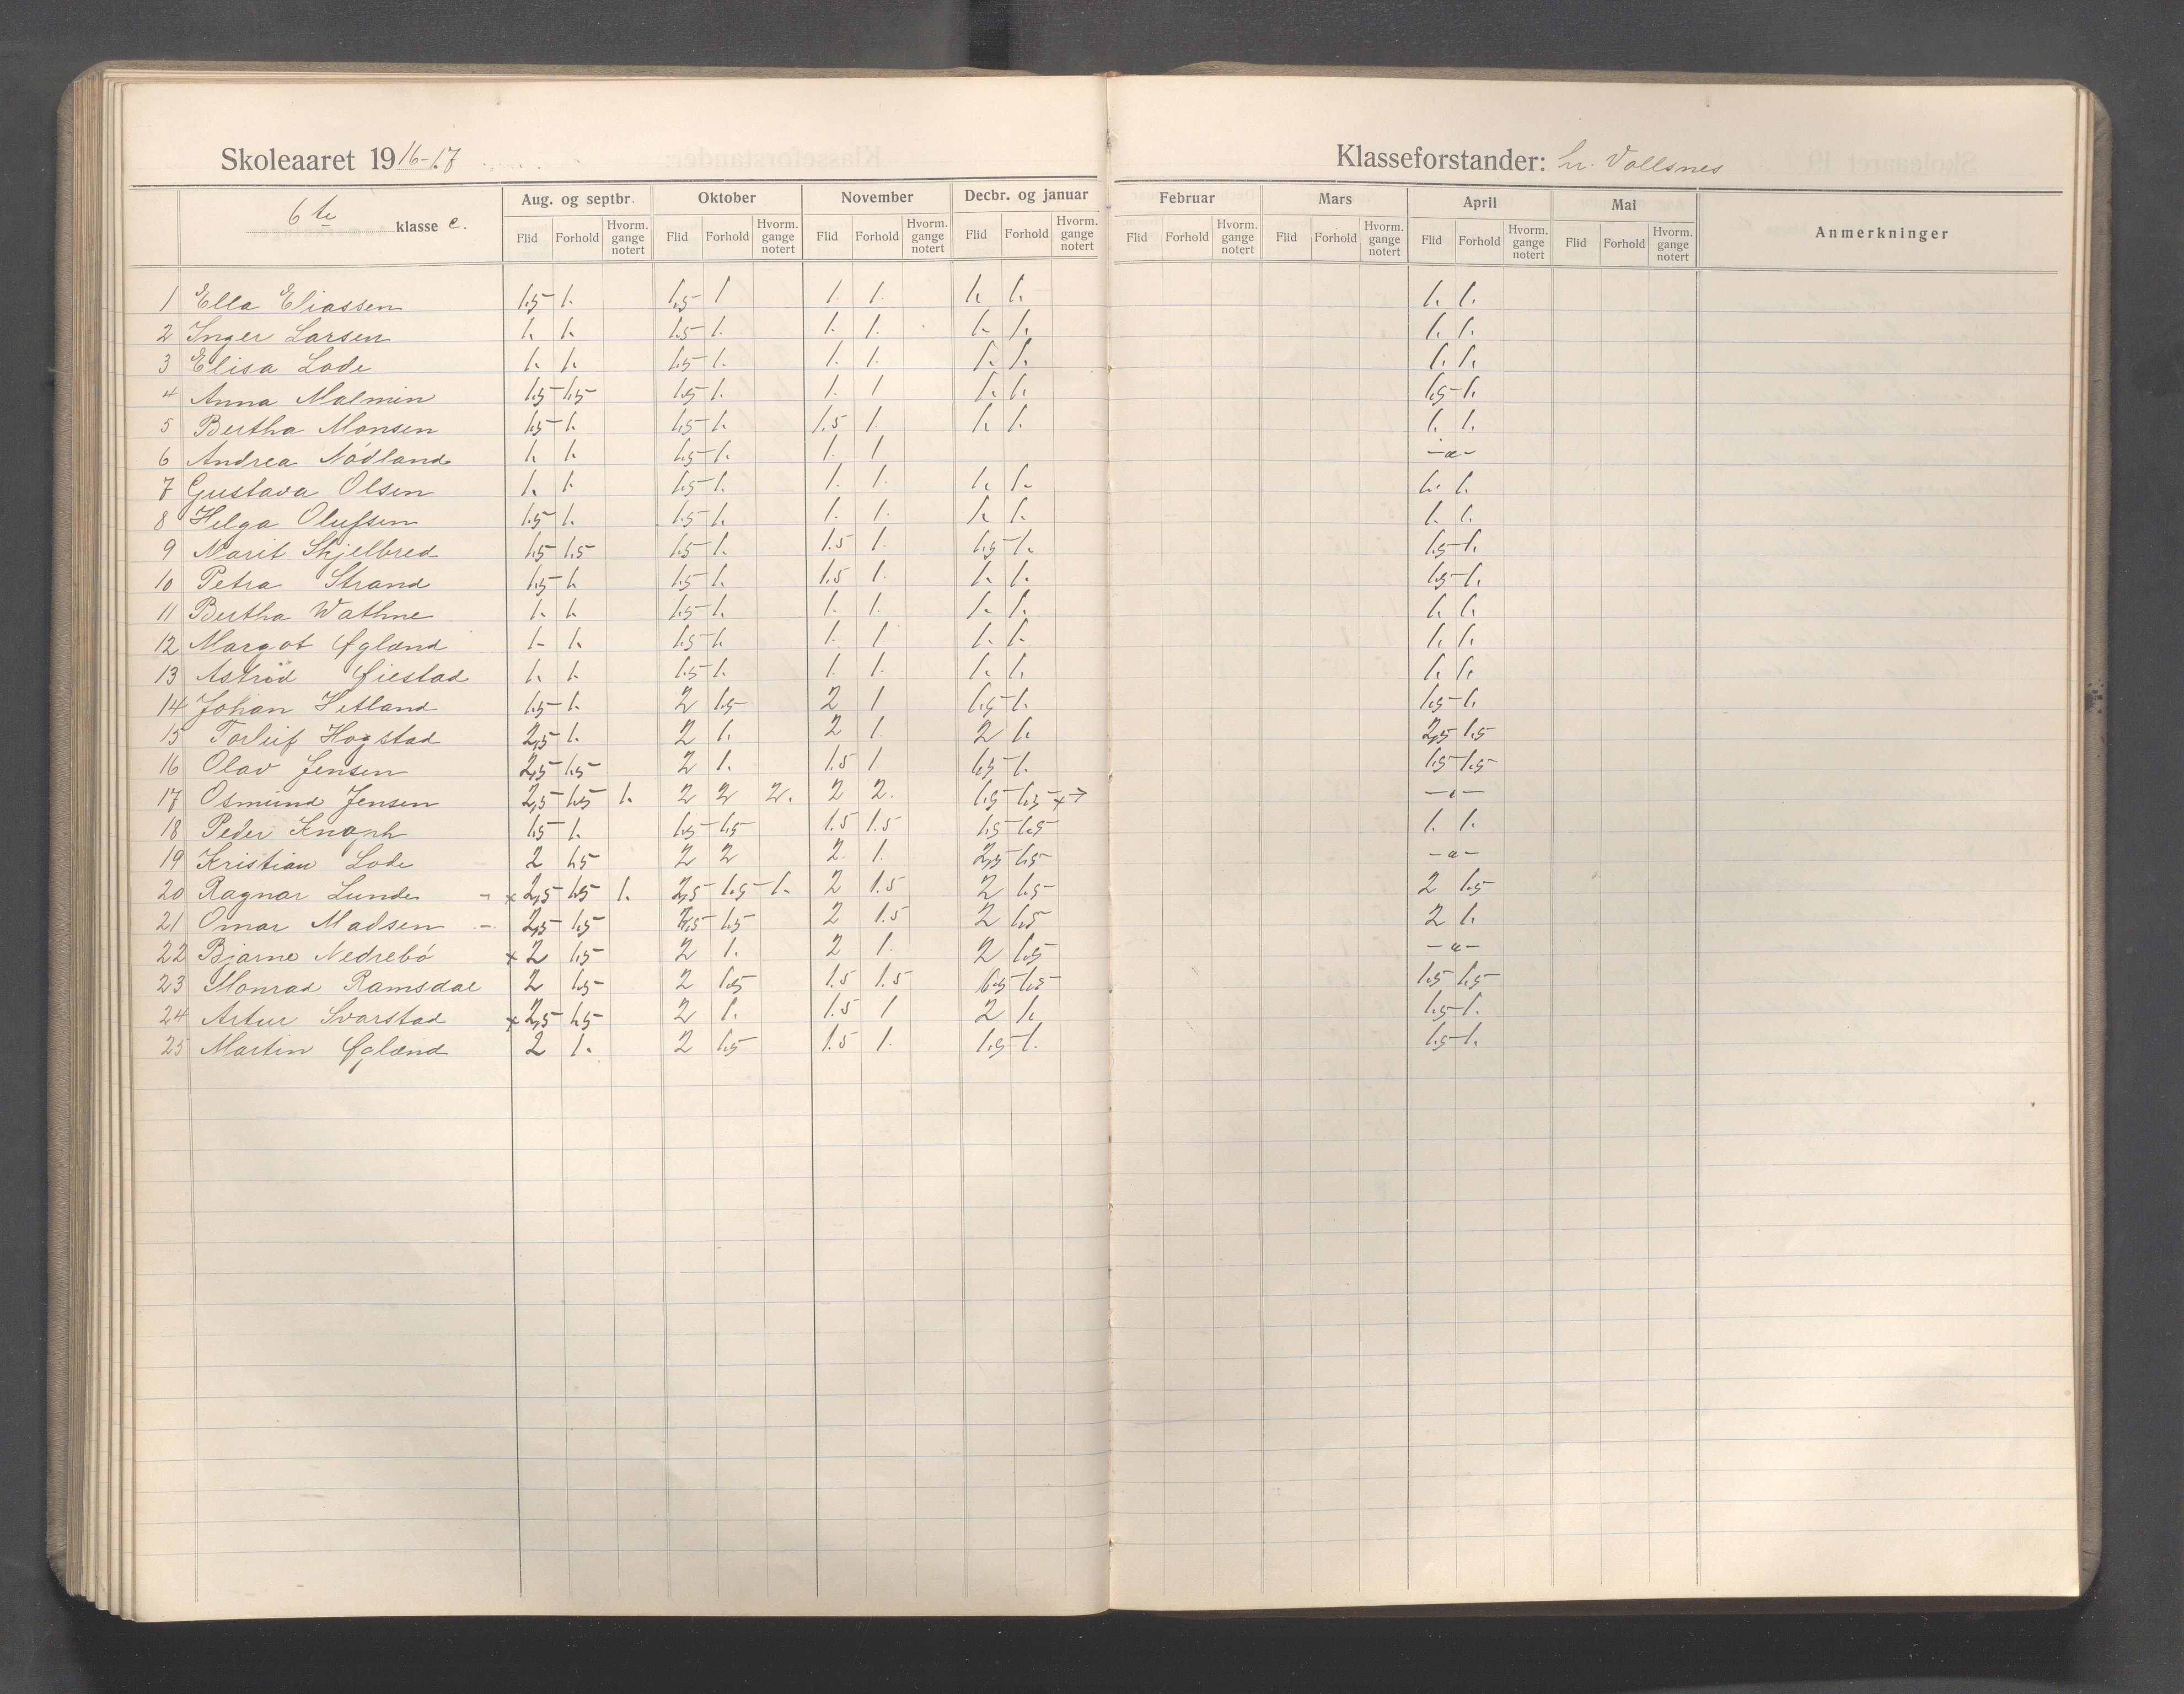 Skoleaaret 1916-17 Klasseforstander: hr. Vollsnes
6te klasse c. Aug. og septbr. Oktober November Decbr. og januar Februar Mars April Mai Anmerkninger
Flid Forhold Hvorm. gange notert Flid Forhold Hvorm. gange notert Flid Forhold Hvorm. gange notert Flid Forhold Hvorm. gange notert Flid Forhold Hvorm. gange notert Flid Forhold Hvorm. gange notert Flid Forhold Hvorm. gange notert Flid Forhold Hvorm. gange notert
1 Ella Eliassen 1.5 1. 1.5 1 1. 1. 1. 1. 1. 1.
2 Inger Larsen 1. 1. 1.5 1. 1. 1. 1. 1. 1. 1.
3 Elisa Lode 1. 1. 1.5 1. 1. 1. 1. 1. 1. 1.
4 Anna Malmin 1.5 1.5 1.5 1. 1. 1 1. 1. 1.5 1.
5 Bertha Monsen 1.5 1. 1.5 1. 1.5 1. 1. 1. 1. 1.
6 Andrea Nådland 1. 1. 1.5 1. 1. 1 -"-
7 Gustava Olsen 1. 1. 1.5 1. 1. 1. 1. 1. 1. 1.
8 Helga Olufsen 1.5 1. 1.5 1. 1. 1. 1. 1. 1. 1.
9 Marit Skjelbred 1.5 1.5 1.5 1. 1.5 1. 1.5 1. 1.5 1.
10 Petra Strand 1.5 1. 1.5 1. 1.5 1. 1. 1. 1.5 1.
11 Bertha Wathne 1. 1. 1.5 1. 1. 1. 1. 1. 1. 1.
12 Margot Øgland 1. 1. 1.5 1. 1. 1. 1. 1. 1. 1.
13 Astrid Øiestad 1. 1. 1.5 1. 1. 1. 1. 1. 1. 1.
14 Johan Hetland 1.5 1. 2 1.5 2 1 1.5 1. 1.5 1.
15 Torleif Hogstad 2,5 1. 2 1. 2 1. 2 1. 2,5 1.5
16 Olav Jensen 2,5 1.5 2 1. 1.5 1 1.5 1. 1.5 1.5
17 Osmund Jensen 2,5 1.5 1. 2 2 2. 2 2. 1.5 1.5 -"-
18 Peder Knoph 1.5 1. 1.5 1.5 1.5 1.5 1.5 1.5 1. 1.
19 Kristian Lode 2 1.5 2 2 2. 1. 2,5 1.5 -"-
20 Ragnar Lunde x 2,5 1.5 1. 2,5 1.5 1. 2 1.5 2 1.5 2 1.5
21 Omar Madsen 2,5 1.5 1.5 2 1.5 2 1.5 2 1.
22 Bjarne Nedrebö x 2 1.5 2 1. 2 1. 2 1.5 -"-
23 Monrad Ramsdal 2 1.5 2 1.5 1.5 1.5 1.5 1.5 1.5 1.5
24 Artur Svarstad x 2,5 1.5 2 1. 1.5 1 2 1. 1.5 1.
25 Martin Øgland 2 1. 2 1.5 1.5 1. 1.5 1. 1.5 1.